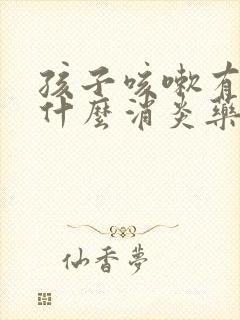 孩子咳嗽有
什麼消炎藥
仙香夢